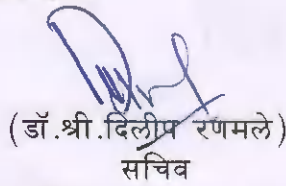 (डॉ.श्री.दिलीप रणमले)
सचिव